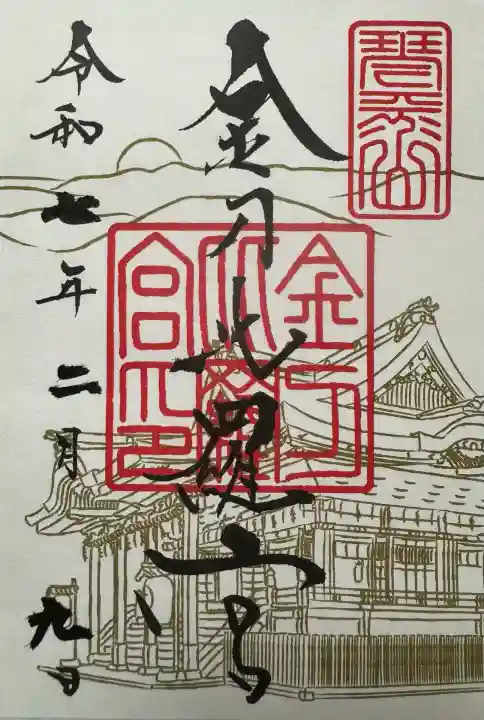 琴平山
金刀比羅宮
金刀
比羅
宮印
令和七年二月九日